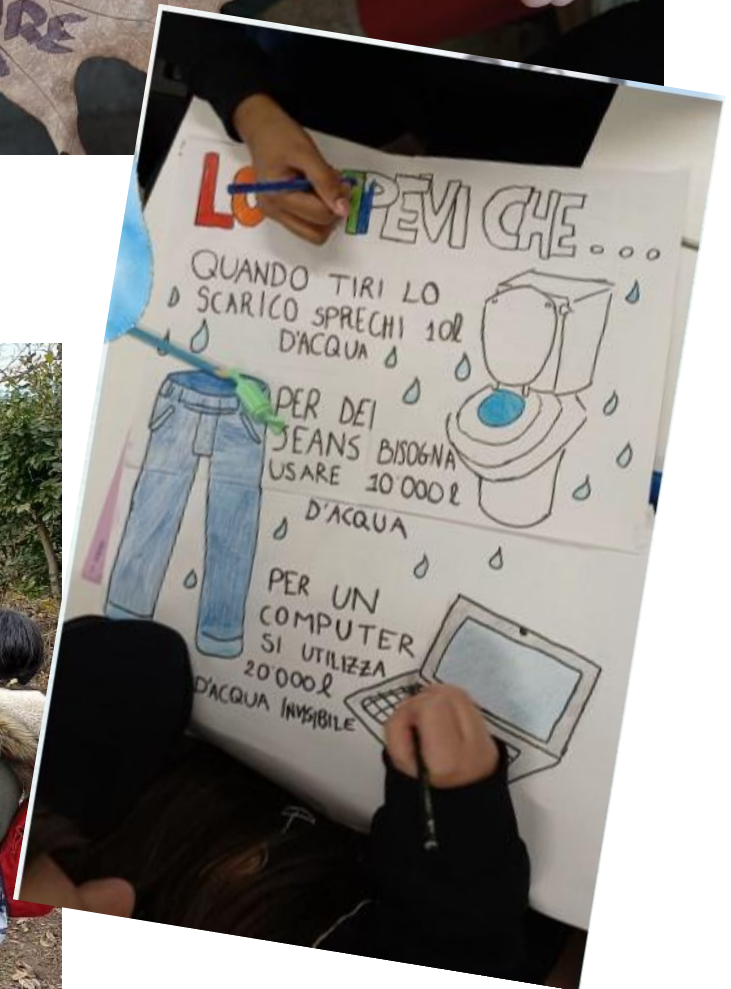 LO SAPEVI CHE...
QUANDO TIRI LO
SCARICO SPRECHI 10l
D'ACQUA
PER DEI
JEANS BISOGNA
USARE 10'000 l
D'ACQUA
PER UN
COMPUTER
SI UTILIZZA
20'000 l
D'ACQUA INVISIBILE